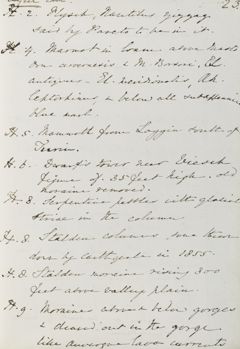 23
H. 2. Flysch, Nautilus ziczac
said by Pareto to be in it.
H. 4. Marmot in loam above
Arvernensis & M. Borsoni, El.
antiquus - El. meridionalis, Rh.
leptorhinus, & below all subapennine
blue marl.
H. 5 Mammoth from Loggia south of
Turin.
H. 6. Dwarf's tower near Viesch
figure of 35 feet high. old
moraine removed.
H. 8. Serpentine pebbles with glacial
striae in the column
H. 8. Stalden columns some thrown
down by earthquake in 1855.
H. 8. Stalden moraine rising 300
feet above valley plain.
H. 9. Moraines above & below gorges
& cleared out in the gorge
like auvergne lava currents